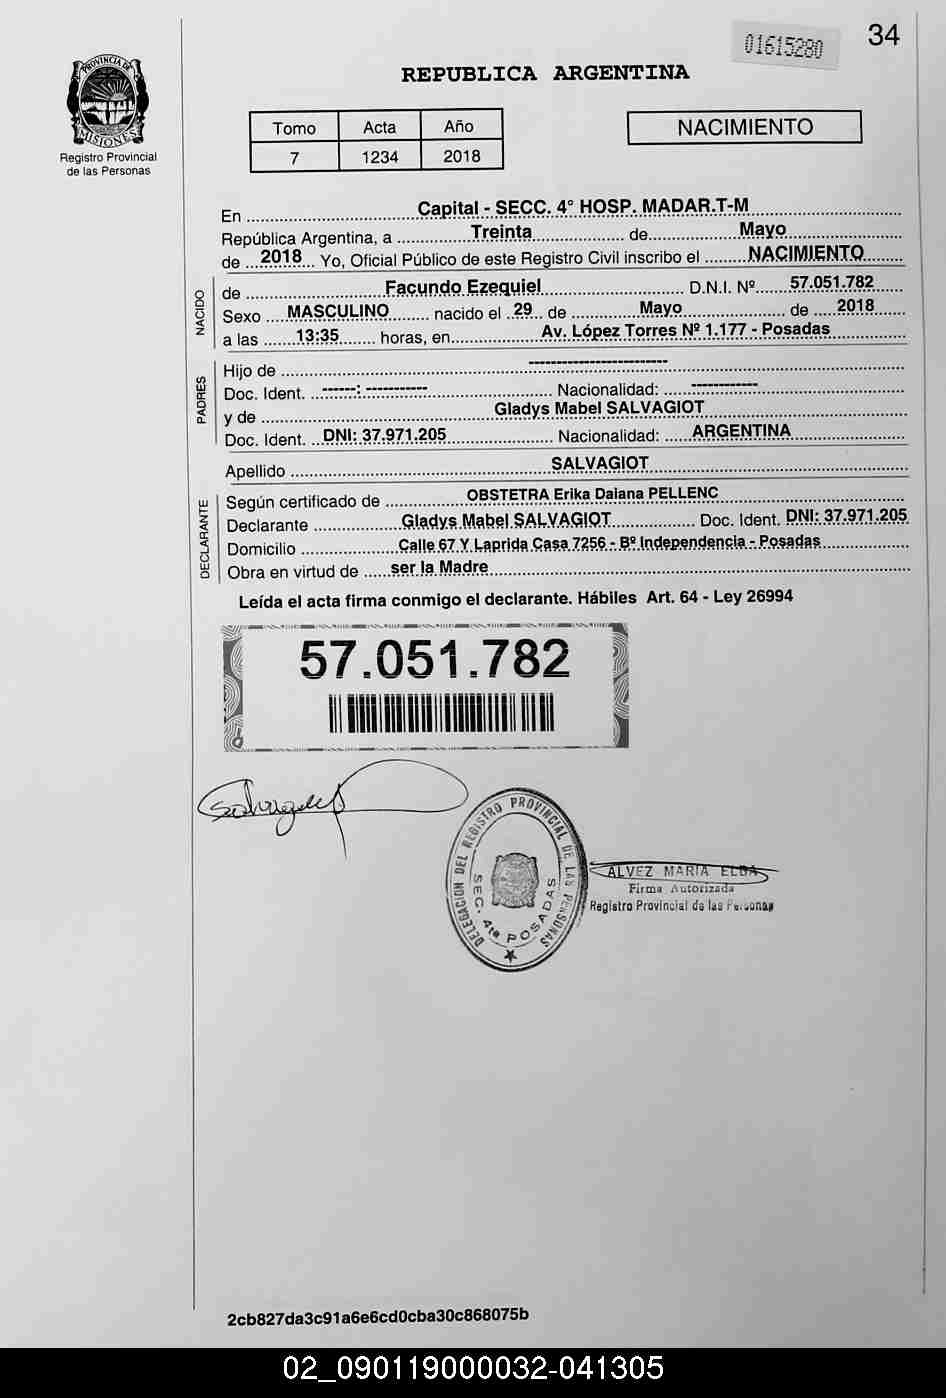 01615280
34
REPUBLICA ARGENTINA
PROVINCIA DE
MISIONES
Registro Provincial
de las Personas
Tomo Acta Año
7 1234 2018
NACIMIENTO
En Capital - SECC. 4° HOSP. MADAR.T-M
República Argentina, a Treinta de Mayo
de 2018 Yo, Oficial Público de este Registro Civil inscribo el NACIMIENTO
NACIDO
de Facundo Ezequiel D.N.I. Nº 57.051.782
Sexo MASCULINO nacido el 29 de Mayo de 2018
a las 13:35 horas, en Av. López Torres Nº 1.177 - Posadas
PADRES
Hijo de --------------------------
Doc. Ident. ------: ----------- Nacionalidad: ------------
y de Gladys Mabel SALVAGIOT
Doc. Ident. DNI: 37.971.205 Nacionalidad: ARGENTINA
Apellido SALVAGIOT
DECLARANTE
Según certificado de OBSTETRA Erika Daiana PELLENC
Declarante Gladys Mabel SALVAGIOT Doc. Ident. DNI: 37.971.205
Domicilio Calle 67 Y Laprida Casa 7256 - Bº Independencia - Posadas
Obra en virtud de ser la Madre
Leída el acta firma conmigo el declarante. Hábiles Art. 64 - Ley 26994
57.051.782
DELEGACION DEL REGISTRO PROVINCIAL DE LAS PERSONAS
SEC. 4ta POSADAS
ALVEZ MARIA ELBA
Firma Autorizada
Registro Provincial de las Personas
2cb827da3c91a6e6cd0cba30c868075b
02_090119000032-041305